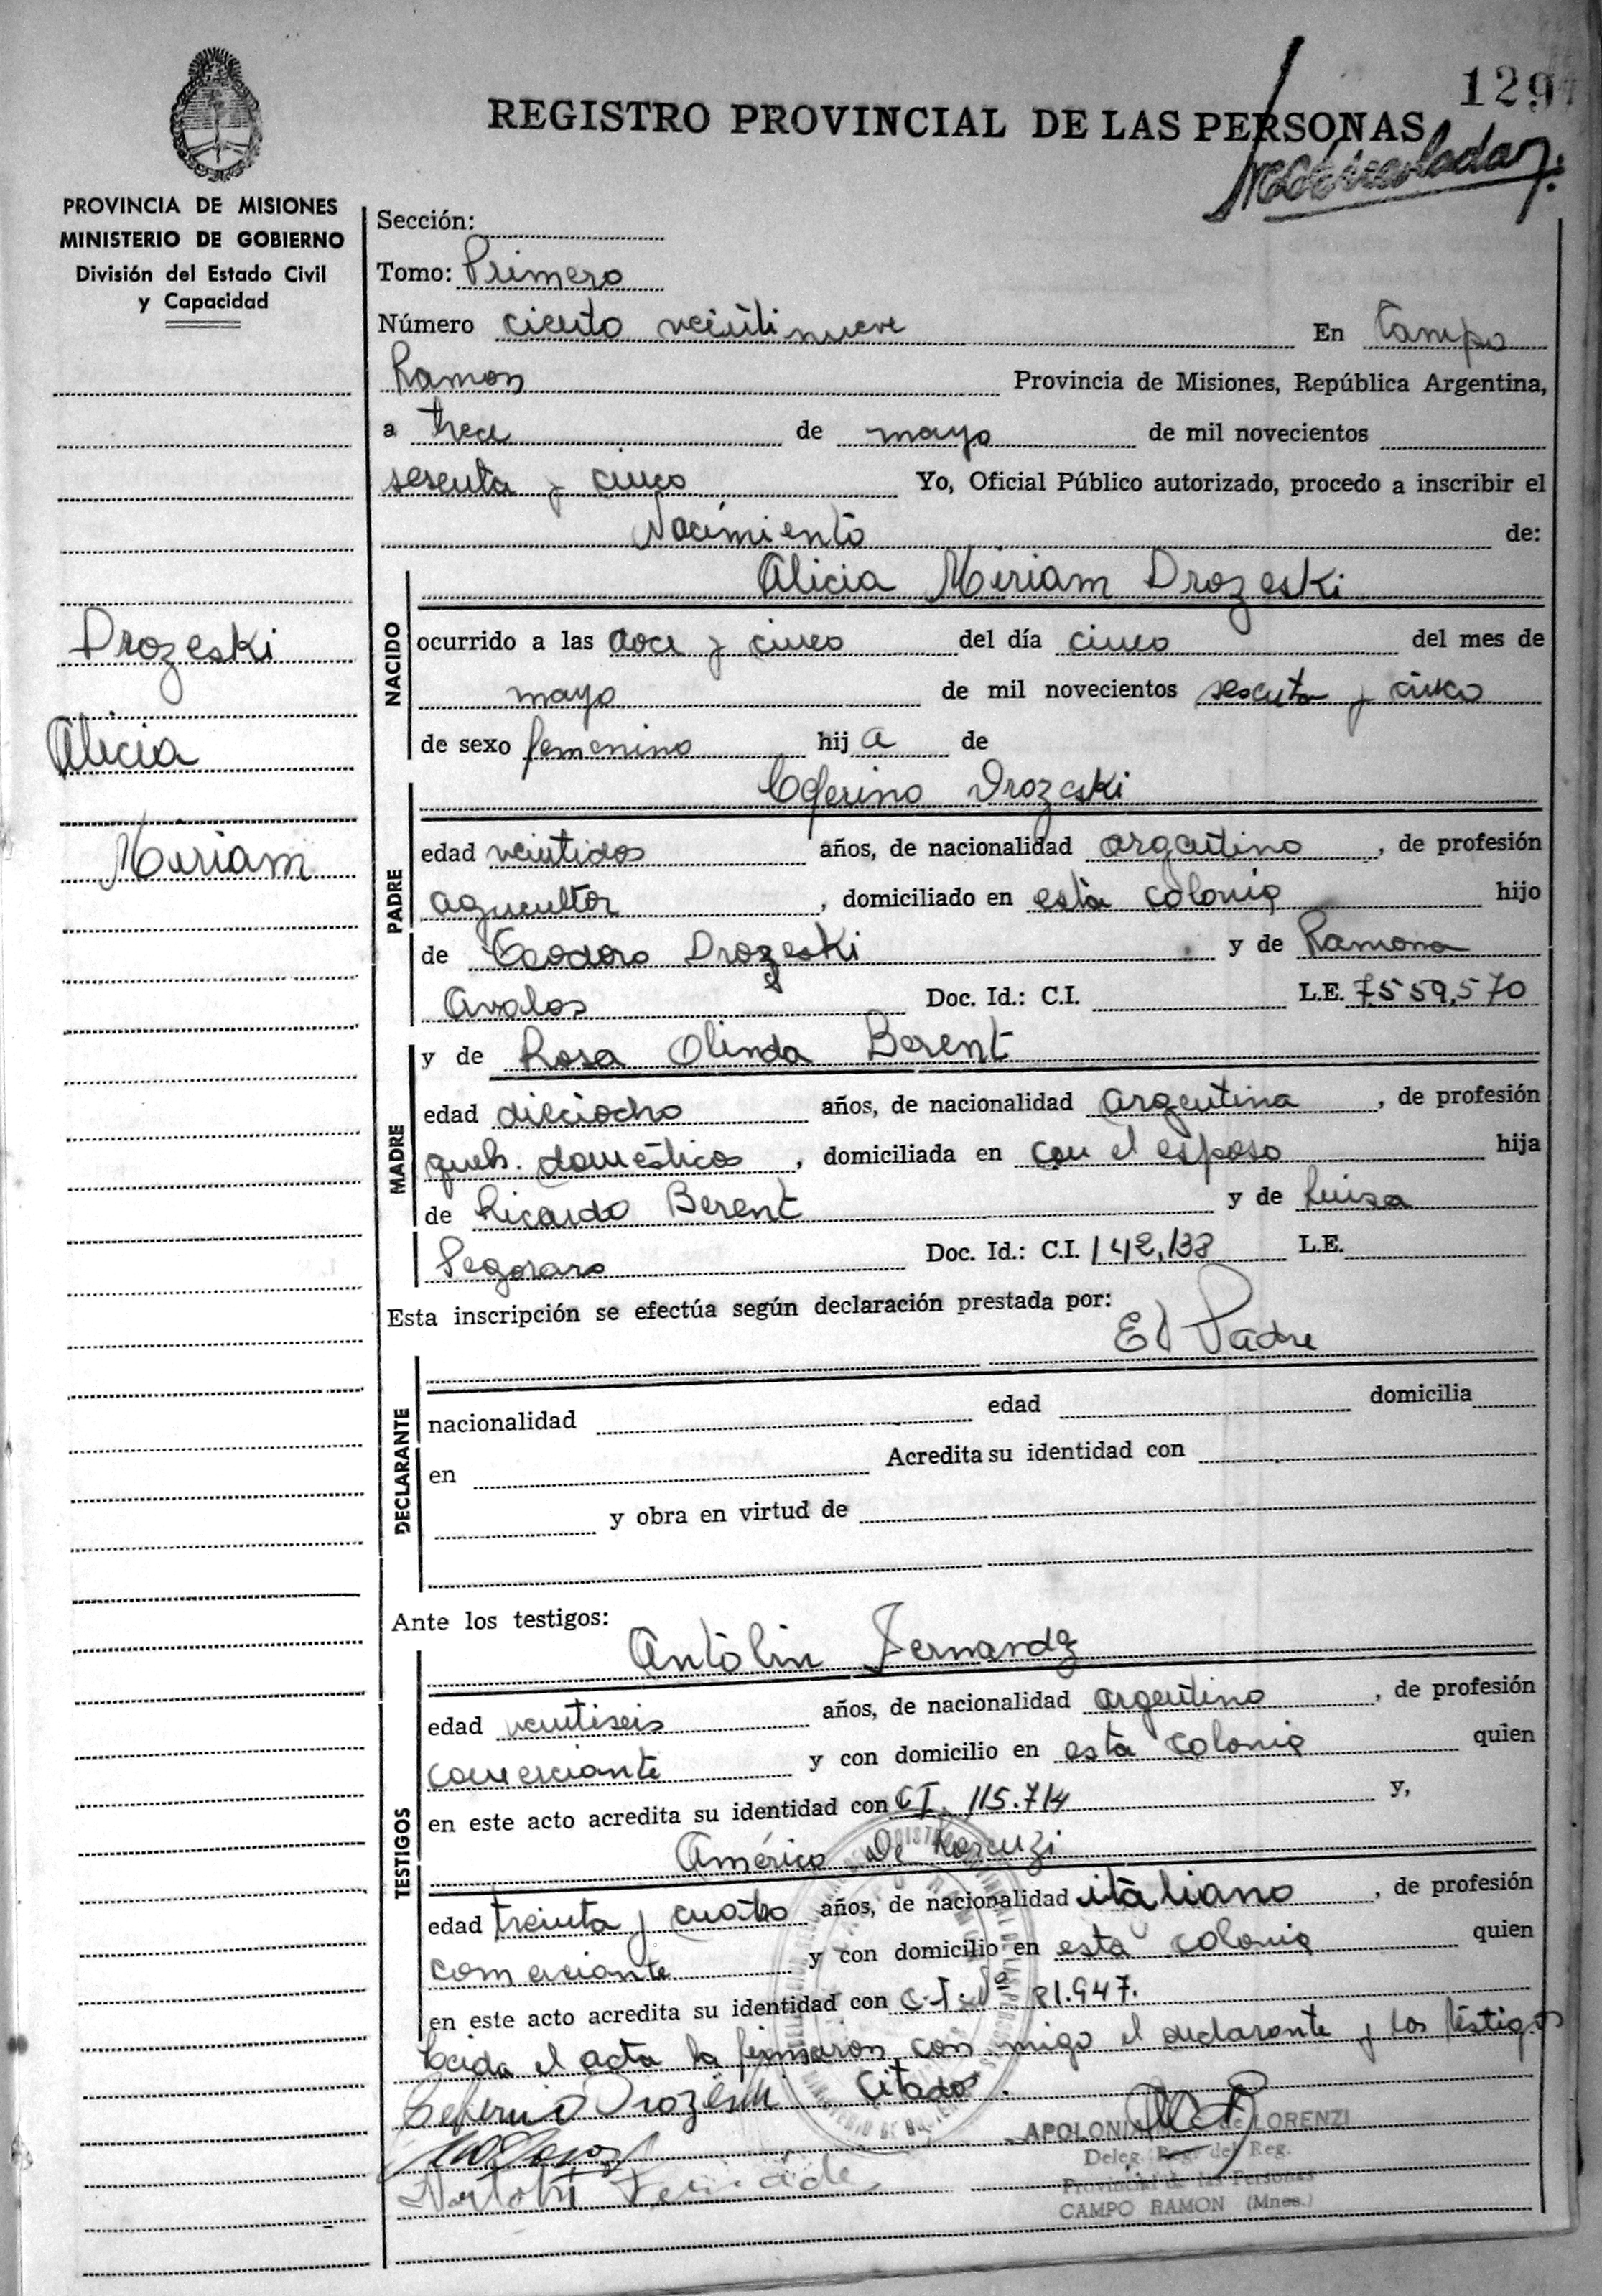 129
REGISTRO PROVINCIAL DE LAS PERSONAS
PROVINCIA DE MISIONES
MINISTERIO DE GOBIERNO
División del Estado Civil
y Capacidad
Sección:
Tomo: Primero
Número ciento veintinueve En Campo
Ramon Provincia de Misiones, República Argentina,
a trece de mayo de mil novecientos
sesenta y cinco Yo, Oficial Público autorizado, procedo a inscribir el
Nacimiento de:
Drozeski
Alicia
Miriam
NACIDO
Alicia Miriam Drozeski
ocurrido a las doce y cinco del día cinco del mes de
mayo de mil novecientos sesenta y cinco
de sexo femenino hij a de
PADRE
Ceferino Drozeski
edad veintidos años, de nacionalidad argentino, de profesión
agricultor, domiciliado en esta colonia hijo
de Teodoro Drozeski y de Ramona
Avalos Doc. Id.: C.I. L.E. 7.559,570
MADRE
y de Rosa Olinda Berent
edad dieciocho años, de nacionalidad argentina, de profesión
queh. domésticos, domiciliada en con el esposo hija
de Ricardo Berent y de Luisa
Pegoraro Doc. Id.: C.I. 142,138 L.E.
Esta inscripción se efectúa según declaración prestada por:
El Padre
DECLARANTE
nacionalidad edad domicilia
en Acredita su identidad con
y obra en virtud de
Ante los testigos:
TESTIGOS
Antolin Fernandz
edad veintiseis años, de nacionalidad argentino, de profesión
comerciante y con domicilio en esta colonia quien
en este acto acredita su identidad con CI. 115.714 y,
Américo De Lorenzi
edad treinta y cuatro años, de nacionalidad italiano, de profesión
comerciante y con domicilio en esta colonia quien
en este acto acredita su identidad con C.I. Nº 21.947.
Leida el acta la firmaron con migo el declarante y los testigos
citados.
Ceferino Drozeski
APOLONIA de LORENZI
Deleg. Reg. del Reg.
Provincial de las Personas
CAMPO RAMON (Mnes.)